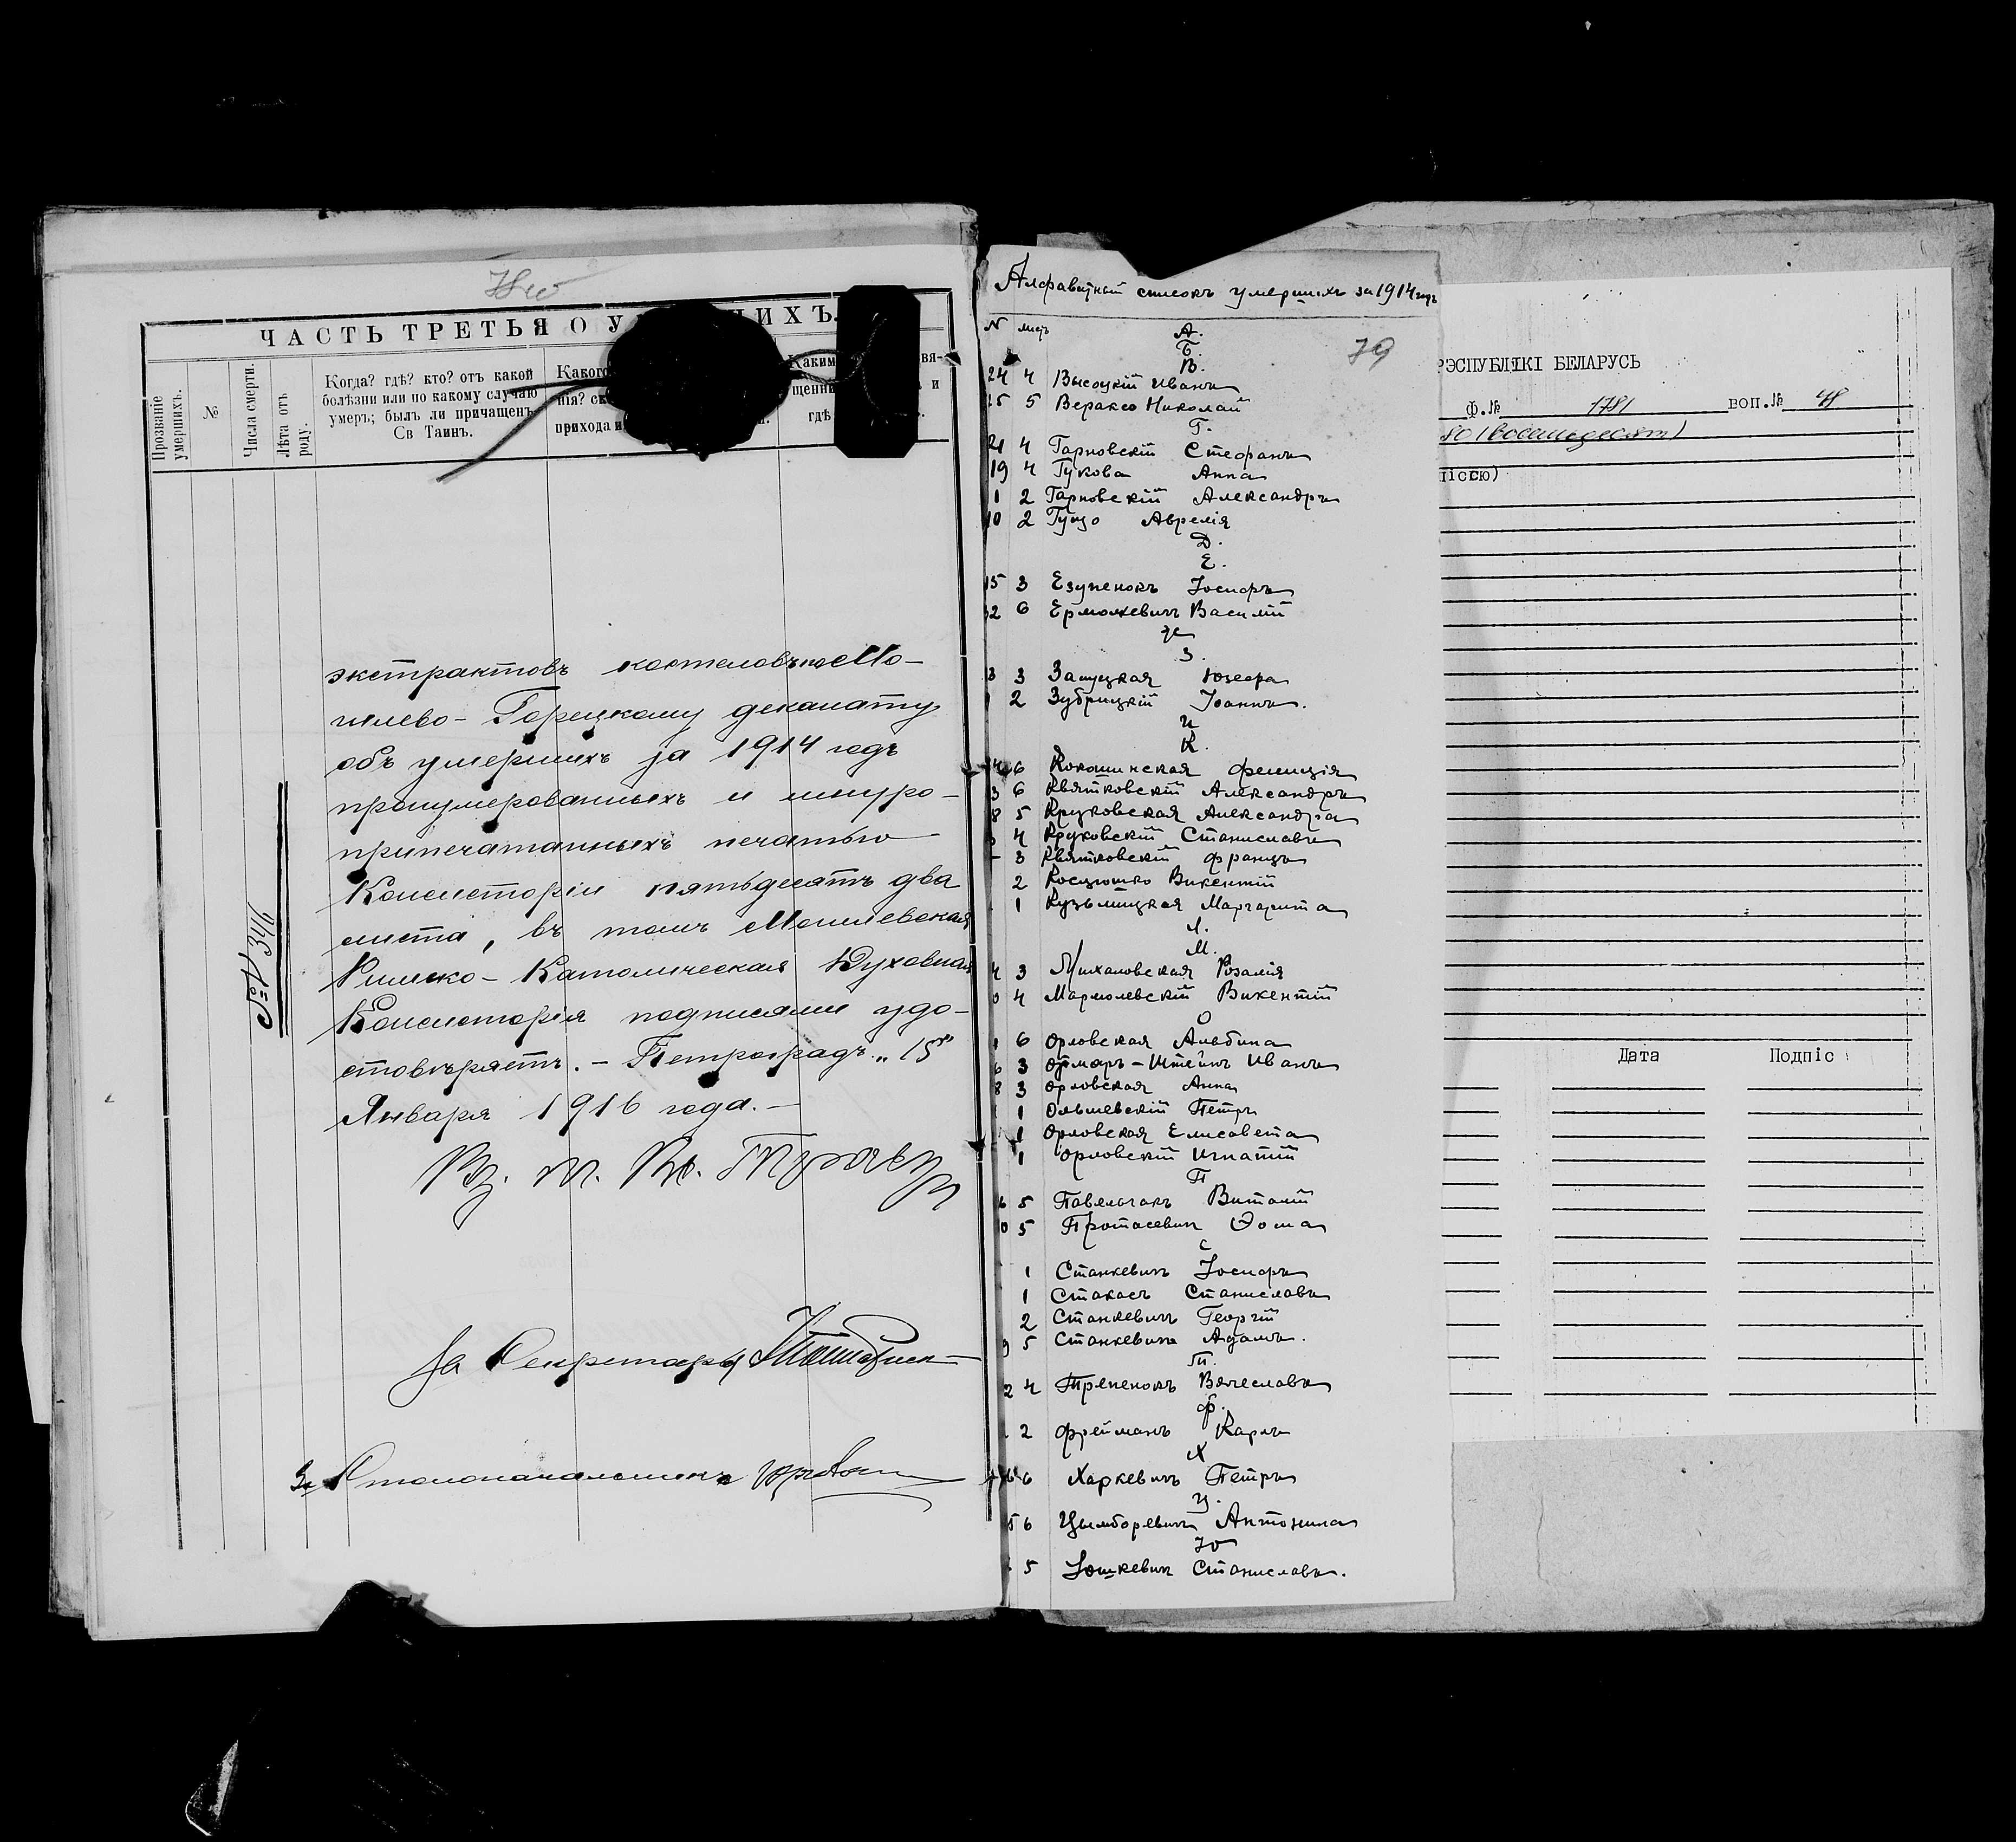 78 об
ЧАСТЬ ТРЕТЬЯ О У ИХЪ.
Прозваніе умершихъ.
№
Числа смерти.
Лѣта отъ роду.
Когда? гдѣ? кто? отъ какой
болѣзни или по какому случаю
умеръ; былъ ли причащенъ
Св Таинъ.
Какого
нія? ск
прихода и
Каким
щенни
гдѣ
вя-
и
экстрактовъ костеловъ по Мо-
гилево-Горецкому деканату
объ умершихъ за 1914 годъ
пронумерованныхъ и шнуро-
припечатанныхъ печатью
Консисторіи пятьдесятъ два
листа, въ томъ Могилевская
Римско-Католическая Духовная
Консисторія подписями удо-
стовѣряетъ. – Петроградъ. „15"
Января 1916 года. –
№ 3411
За Секретаря
За Столоначальника
Алфавитный списокъ умершихъ за 1914 годъ
79
N листъ
А.
Б.
В.
24 4 Высоцкій Иванъ
25 5 Вераксо Николай
Г.
21 4 Гарновскій Стефанъ
19 4 Гукова Анна
1 2 Гарновскій Александръ
10 2 Гуцо Аврелія
Д.
Е.
15 3 Езупенокъ Іосифъ
32 6 Ермолкевичъ Василій
Ж
З.
3 3 Запуцкая Юзефа
2 Зубрицкій Іоаннъ.
И
К.
6 Кокошинская Фелиція
3 6 Квятковскій Александръ
8 5 Круковская Александра
4 Круковскій Станиславъ
3 Квятковскій Францъ
2 Косцюшко Викентій
1 Кузьмицкая Маргарита
Л.
М.
4 3 Михаловская Розалія
0 4 Мармолевскій Викентій
О
6 Орловская Альбина
6 3 Ормаръ-Штейнъ Иванъ
8 3 Орловская Анна
1 Ольшевскій Петръ
1 Орловская Елисавета
1 Орловскій Игнатій
П
6 5 Павельчакъ Виталій
0 5 Протасевичъ Фома
С
1 Станкевичъ Іосифъ
1 Стакасъ Станиславъ
2 Станкевичъ Георгій
9 5 Станкевичъ Адамъ.
Т.
2 4 Трепенокъ Вячеславъ
Ф.
2 Фрейманъ Карлъ
Х
6 Харкевичъ Петръ
Ц.
5 6 Цымборевичъ Антонина
Ю
5 Юшкевичъ Станиславъ.
РЭСПУБЛІКІ БЕЛАРУСЬ
Ф.№ 1781 воп.№
80 (восемьдесят)
піссю)
Дата Подпіс